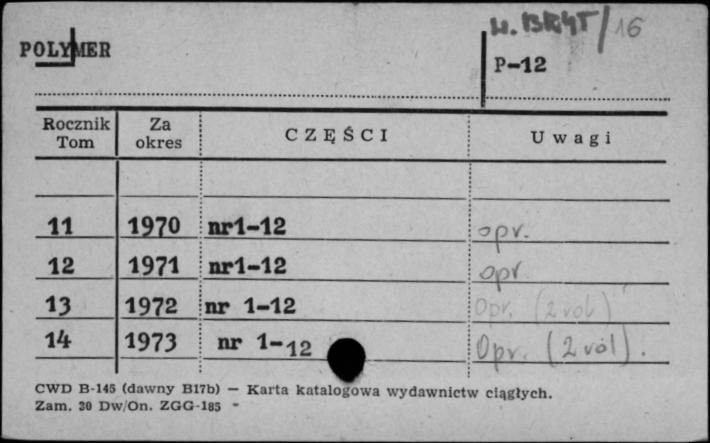 /16
POLYMER
P-12
Rocznik Tom Za okres CZĘŚCI Uwagi
11 1970 nr1-12 opr.
12 1971 nr1-12 opr
13 1972 nr 1-12 Opr. (2 vol)
14 1973 nr 1-12 Opr. (2 vol).
CWD B-145 (dawny B17b) — Karta katalogowa wydawnictw ciągłych.
Zam. 30 Dw/On. ZGG-185 -